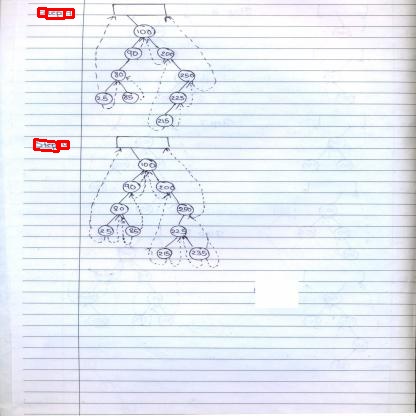 100
90 200
80 250
25 85 225
215
100
90 200
80 250
25 85 225
215 235